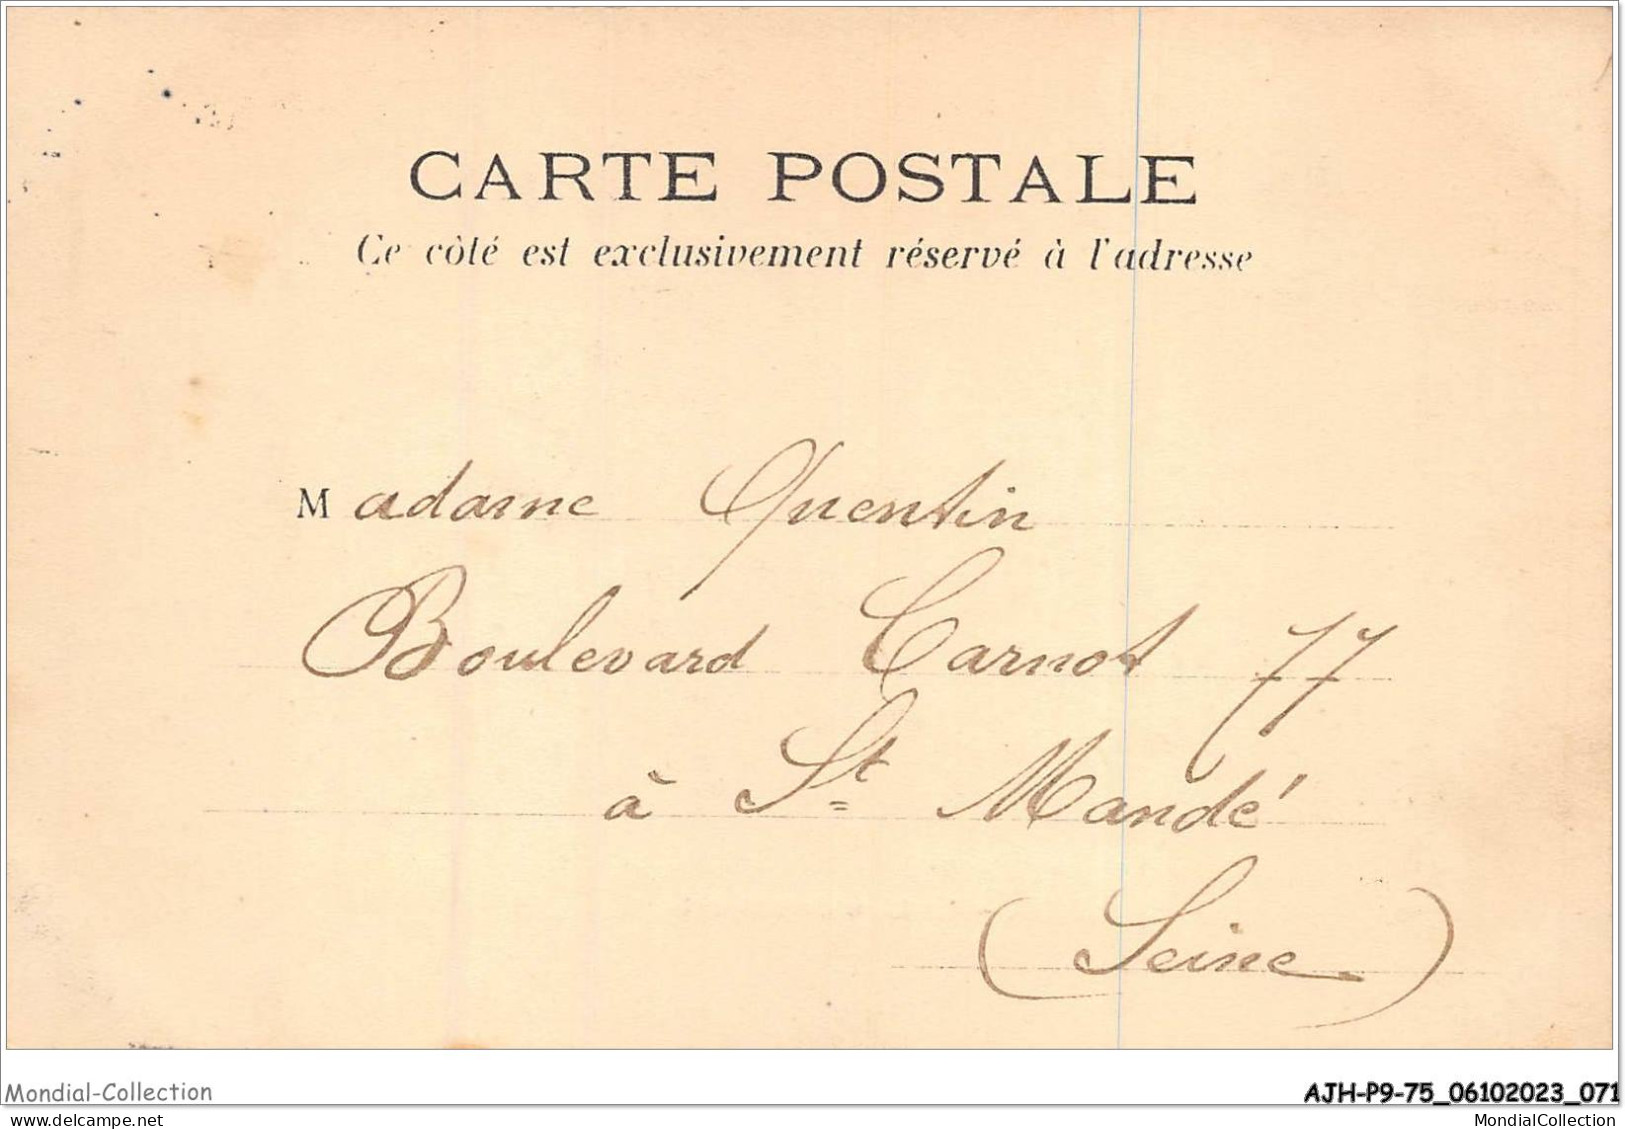 CARTE POSTALE
Ce côté est exclusivement réservé à l'adresse
Madame Quentin
Boulevard Carnot 77
à St Mandé
(Seine)
Mondial-Collection
AJH-P9-75_06102023_071
delcampe.net
MondialCollection